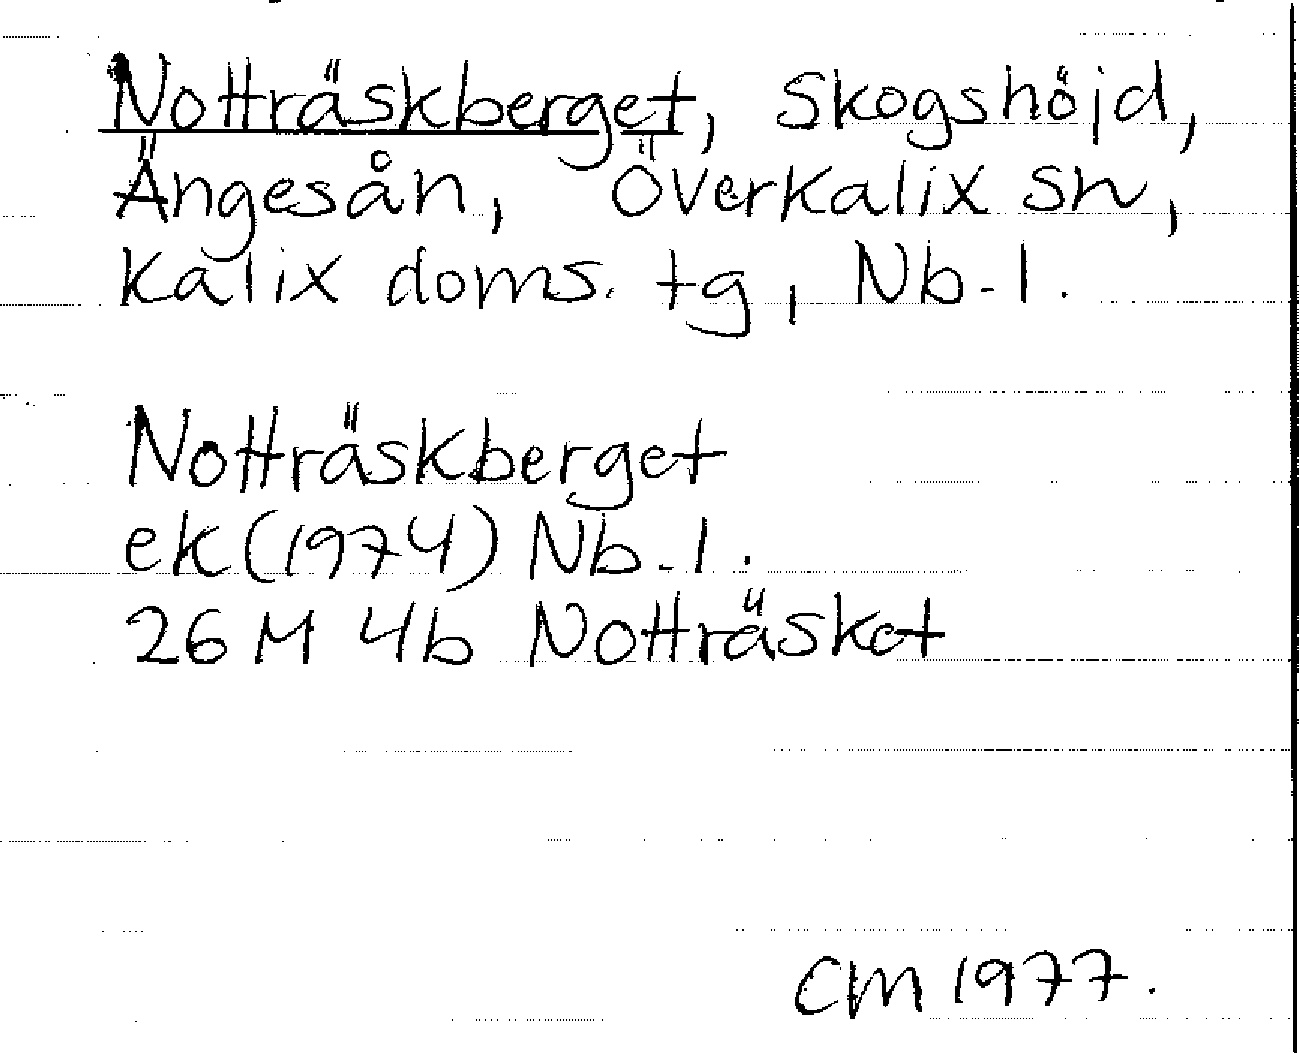 Notträskberget, Skogshöjd,
Ängesån, Överkalix sn,
Kalix doms. tg, Nb. l.
Notträskberget
ek (1974) Nb. l.
26 M 4b Notträsket
CM 1977.